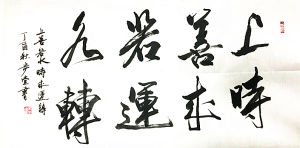 上善若水
時來運轉
上善若水 時來運轉
丁酉秋書